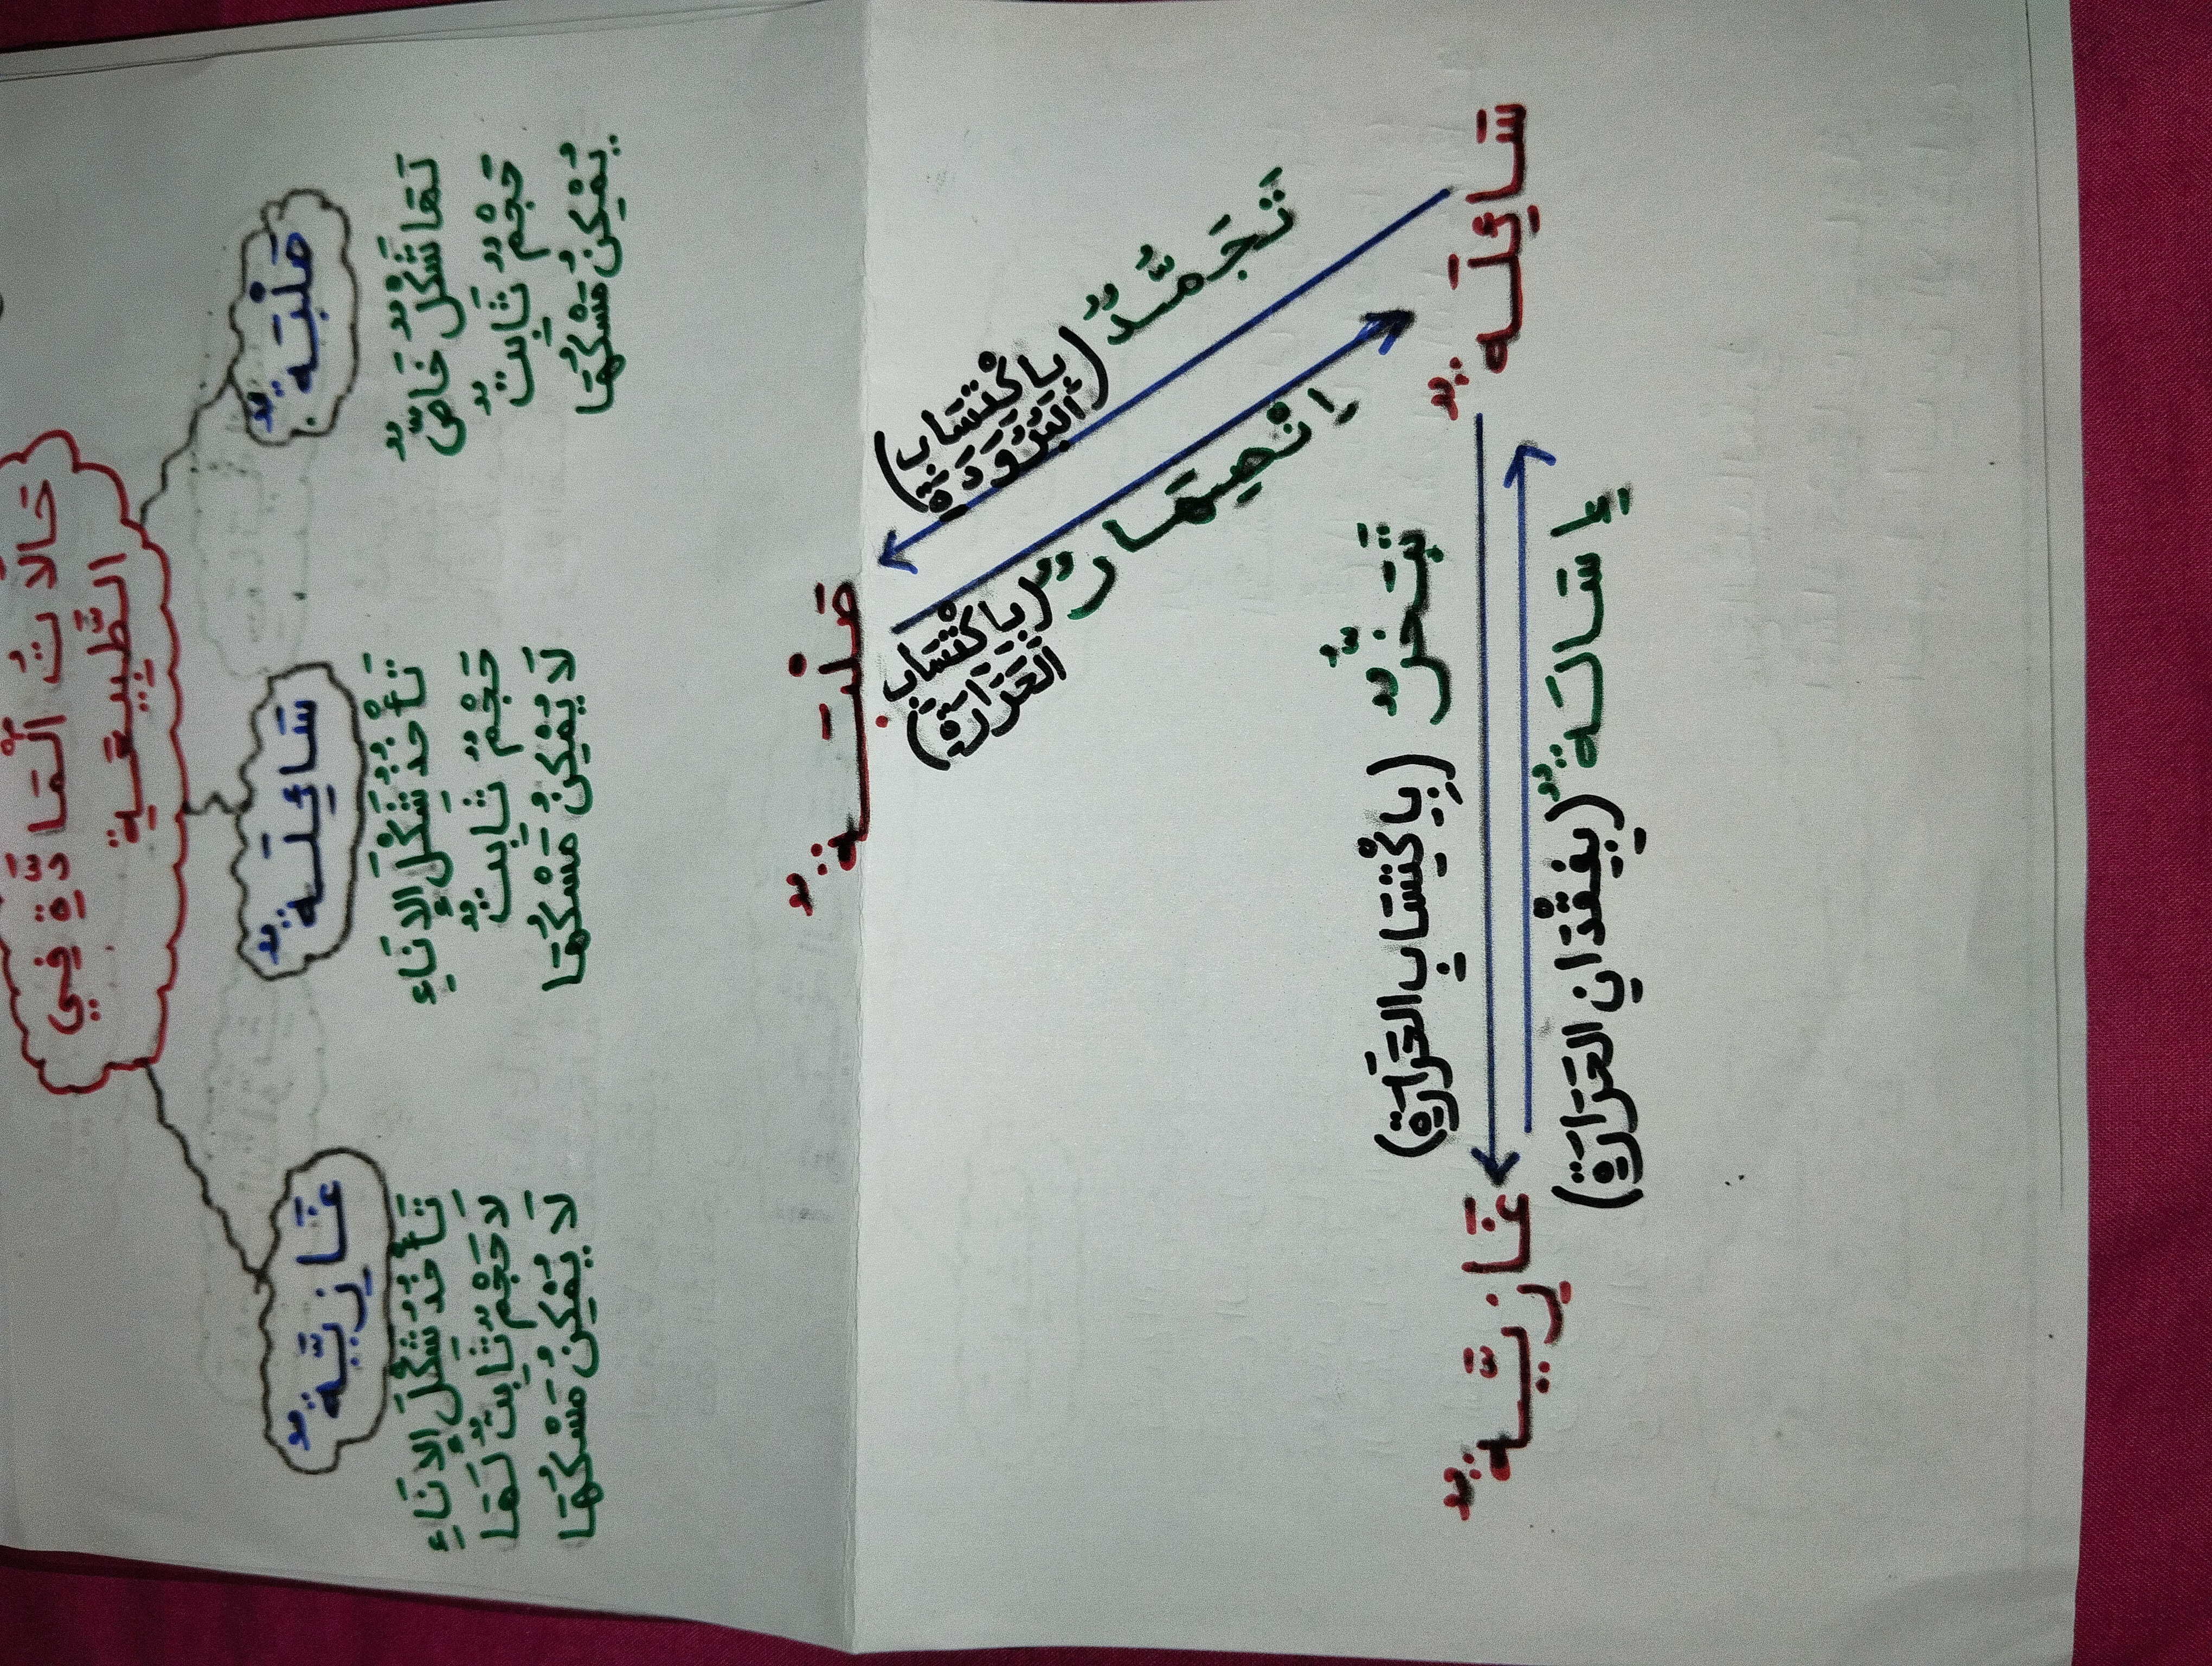 حَالَاتُ الْمَادَّةِ فِي
الطَّبِيعَةِ
صَلْبَةٌ
لَهَا شَكْلٌ خَاصٌّ
حَجْمٌ ثَابِتٌ
يُمْكِنُ مَسْكُهَا
سَائِلَةٌ
تَأْخُذُ شَكْلَ الإِنَاءِ
حَجْمٌ ثَابِتٌ
لَا يُمْكِنُ مَسْكُهَا
غَازِيَّةٌ
تَأْخُذُ شَكْلَ الإِنَاءِ
لَا حَجْمٌ ثَابِتٌ لَهَا
لَا يُمْكِنُ مَسْكُهَا
صَلْبَةٌ
تَجَمُّدٌ
(بِاكْتِسَابِ
الْبُرُودَةِ)
اِنْصِهَارٌ
(بِاكْتِسَابِ
الحَرَارَةِ)
سَائِلَةٌ
تَبَخُّرٌ (بِاكْتِسَابِ الحَرَارَةِ)
إِسَالَةٌ (بِفِقْدَانِ الحَرَارَةِ)
غَازِيَّةٌ